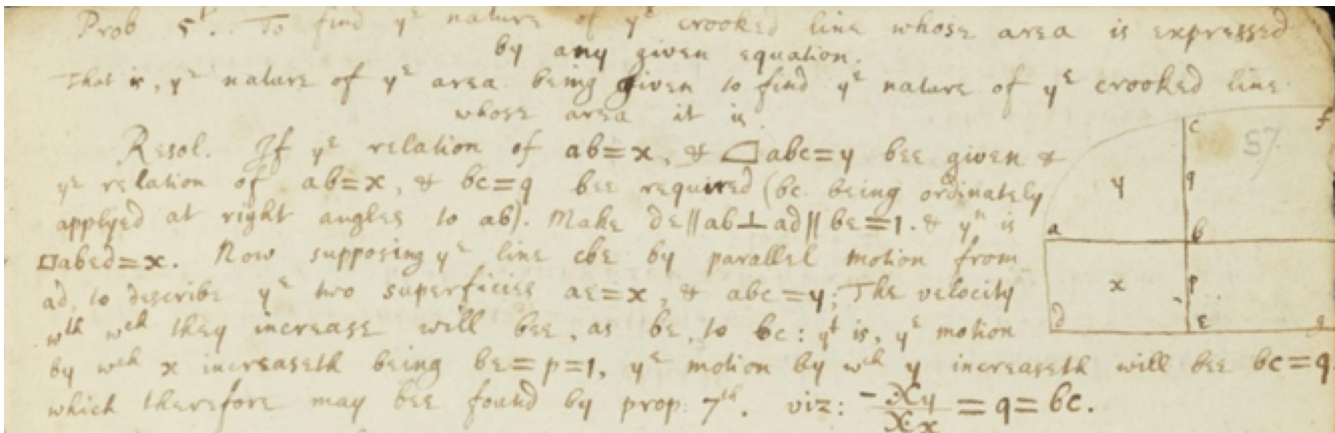 Prob 5t. To find ye nature of ye crooked line whose area is expressed
by any given equation.
That is, ye nature of ye area being given to find ye nature of ye crooked line
whose area it is.
Resol. If ye relation of ab=x, & ⌓abc=y bee given &
ye relation of ab=x, & bc=q bee required (bc being ordinately
applyed at right angles to ab). Make de∥ab⊥ad∥be=1. & yn is
□abed=x. Now supposing ye line cbe by parallel motion from
ad, to describe ye two superficies ae=x, & abc=y; The velocity
wth wch they increase will bee, as be, to bc: yt is, ye motion
by wch x increaseth being be=p=1, ye motion by wch y increaseth will bee bc=q.
which therefore may bee found by prop: 7th. viz: -𝒳y/𝒳x = q = bc.
c
f
57
y
q
a
b
x
p
d
e
g